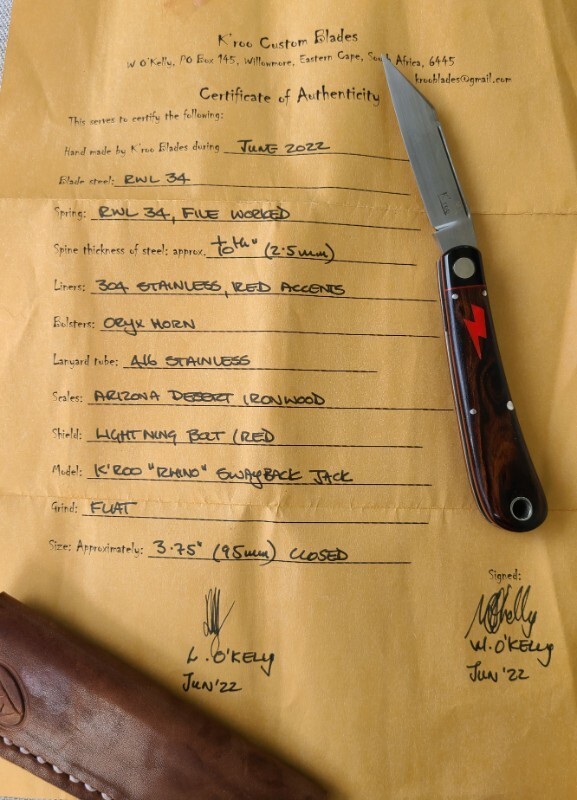 K'roo Custom Blades
W O'Kelly, PO Box 145, Willowmore, Eastern Cape, South Africa, 6445
krooblades@gmail.com
Certificate of Authenticity
This serves to certify the following:
Hand made by K'roo Blades during JUNE 2022
Blade steel: RWL 34
Spring: RWL 34, FILE WORKED
Spine thickness of steel: approx. (2.5mm)
Liners: 304 STAINLESS, RED ACCENTS
Bolsters: ORYX HORN
Lanyard tube: 416 STAINLESS
Scales: ARIZONA DESERT IRONWOOD
Shield: LIGHTNING BOLT (RED
Model: K'ROO "RHINO" SWAYBACK JACK
Grind: FLAT
Size: Approximately: 3.75" (95mm) CLOSED
Signed:
L. O'KELLY
JUN '22
W. O'KELLY
JUN '22